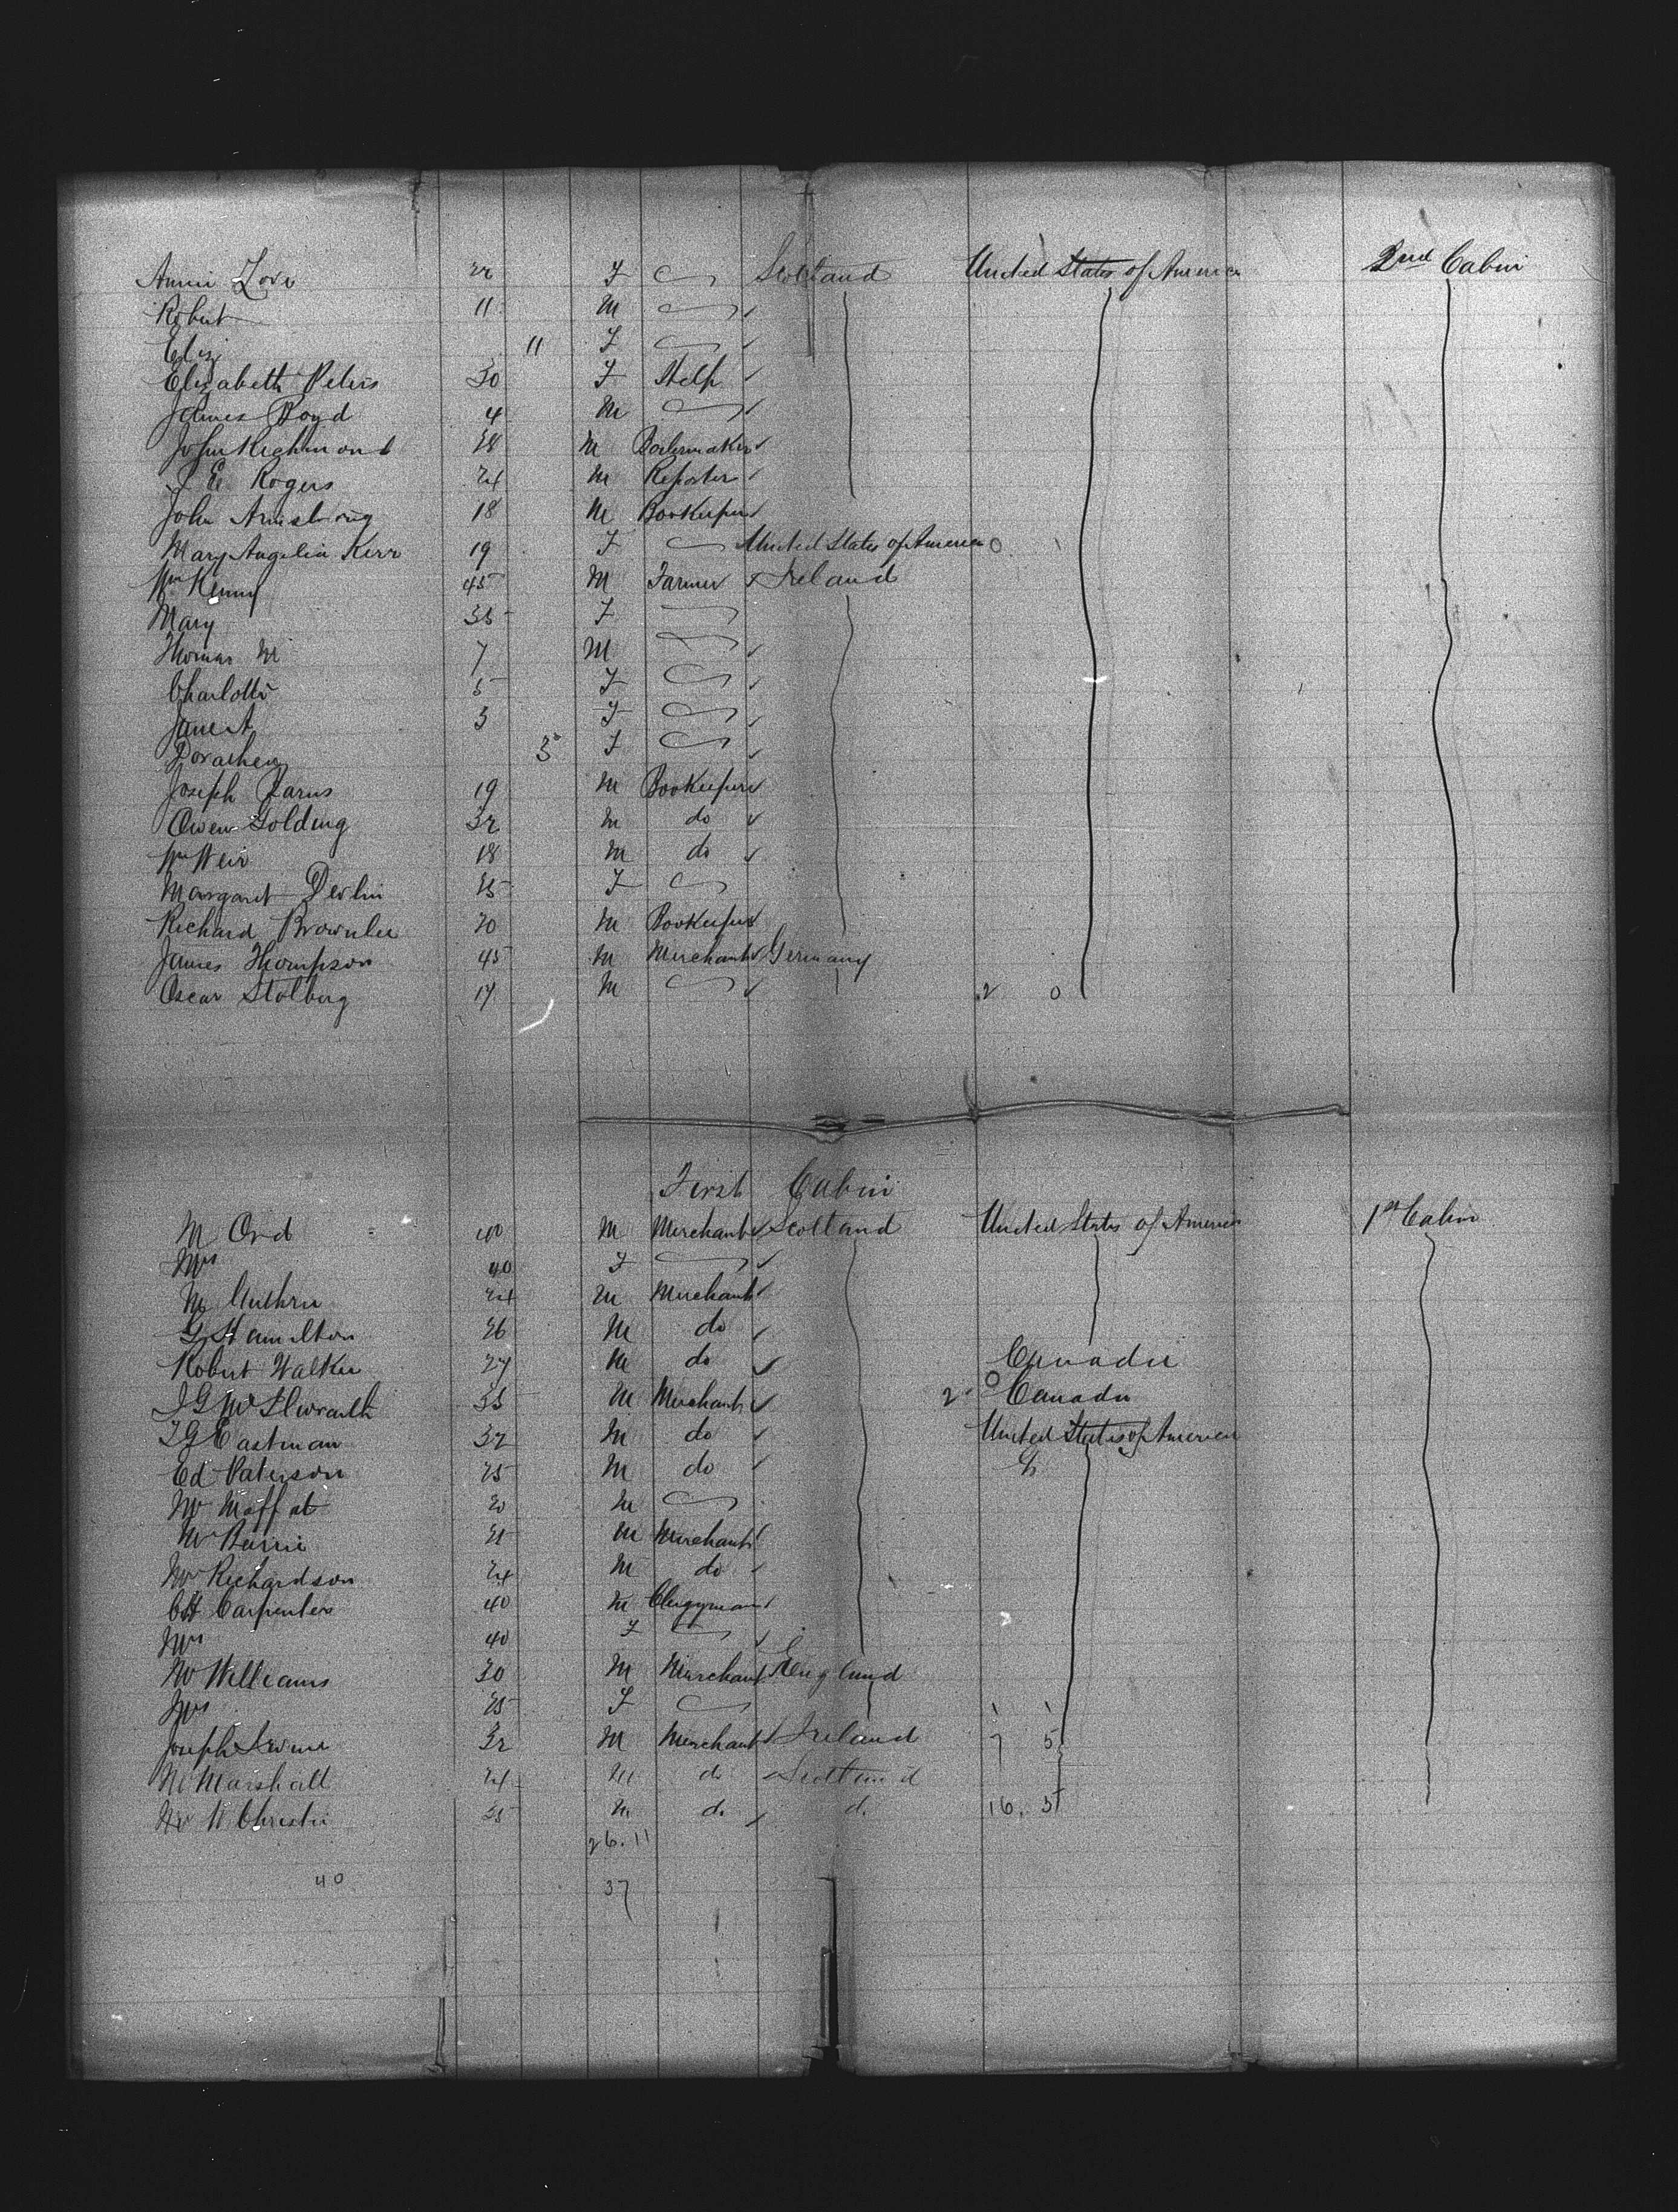 Annie Love 22 F Scotland United States of America 2nd Cabin
Robert 11 M
Eliz 11 F
Elizabeth Peters 30 F Help
James Boyd 4 M
John Richmond 28 M Boilermaker
J E Rogers 24 M Reporter
John Armstrong 18 M Bookeeper
Mary Angelia Kerr 19 F United States of America 0
Wm Kenny 45 M Farmer Ireland
Mary 35 F
Thomas M 7 M
Charlotte 5 F
Jane A 3 F
3 F
Joseph 19 M Bookeeper
Owen Golding 32 M do
Wm Weir 18 M do
Margaret Devlin 25 F
Richard Brownlee 20 M Bookeeper
James Thompson 45 M Merchant Germany
Oscar Stolberg 17 M 2 0
First Cabin
M Ord 40 M Merchant Scotland United States of America 1st Cabin
Mrs 40 F
M Guthrie 24 M Merchant
G Hamilton 26 M do
Robert Walker 27 M do Canada
J G McIlwraith 35 M Merchant 2 0 Canada
T G Eastman 32 M do United States of America
Ed Paterson 25 M do
Mr Moffat 20 M
Mr Barrie 21 M Merchant
Mr Richardson 24 M do
C H Carpenter 40 M Clergyman
Mrs 40 F
Mr Williams 30 M Merchant England
Mrs 25 F
Joseph Irvine 32 M Merchant Ireland 7 5
M Marshall 24 M do Scotland
Mr W Christie 25 M do do 16. 5
26. 11
40 37